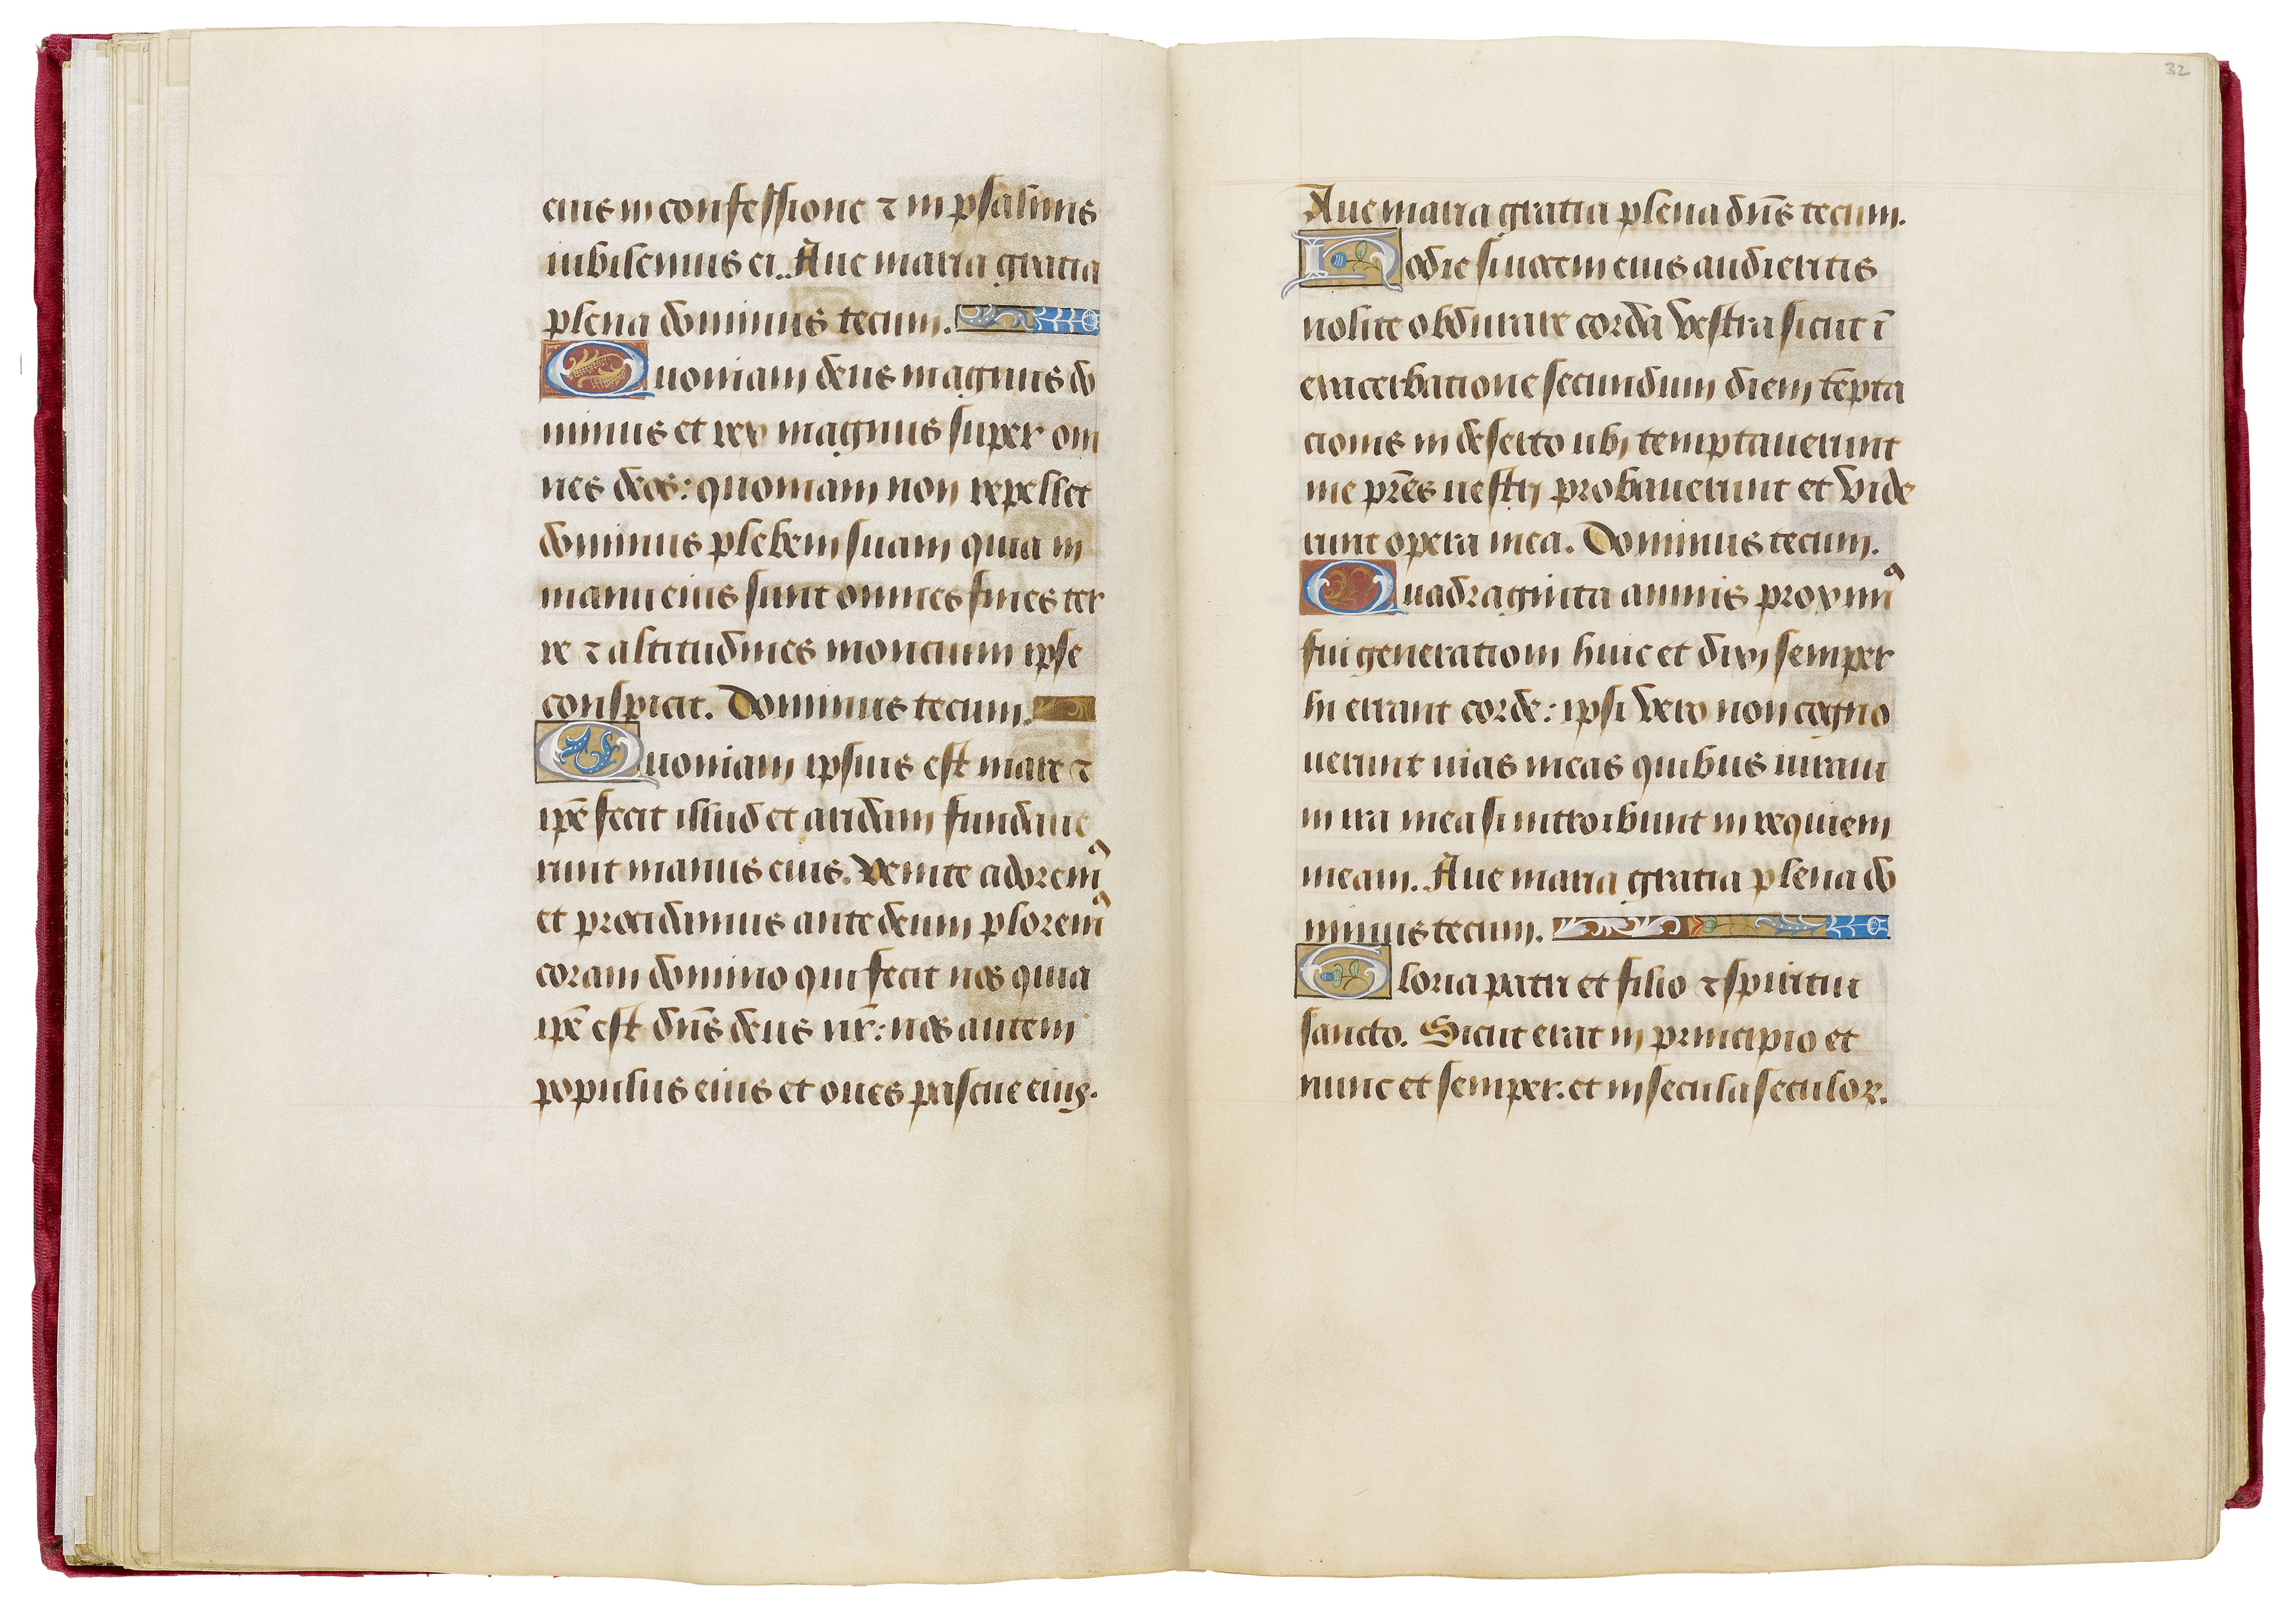 eius in confessione ⁊ in psalmis
iubilemus ei. Aue maria gratia
plena dominus tecum.
Quoniam deus magnus do
minus et rex magnus super om
nes deos: quoniam non repellet
dominus plebem suam quia in
manu eius sunt omnes fines ter
re ⁊ altitudines moncium ipse
conspicit. Dominus tecum.
Quoniam ipsius est mare ⁊
ip̄e fecit illud et aridam fundaue
runt manus eius. Venite adoremꝰ
et procidamus ante deum ploremꝰ
coram domino qui fecit nos quia
ip̄e est dn̄s deus nr̄: nos autem
populus eius et oues pascue eiuꝫ.
32
Aue maria gratia plena dn̄s tecum.
Hodie si uocem eius audieritis
nolite obdurare corda vestra sicut ī
exacerbatione secundum diem tēpta
cionis in deserto ubi temptauerunt
me pr̄es uestri probauerunt et vide
runt opera mea. Dominus tecum.
Quadraginta annis proximꝰ
fui generationi huic et dixi semper
hi errant corde: ipsi vero non cogno
uerunt uias meas quibus iuraui
in ira mea si introibunt in requiem
meam. Aue maria gratia plena do
minus tecum.
Gloria patri et filio ⁊ spiritui
sancto. Sicut erat in principio et
nunc et semper. et in secula seculoꝝ.